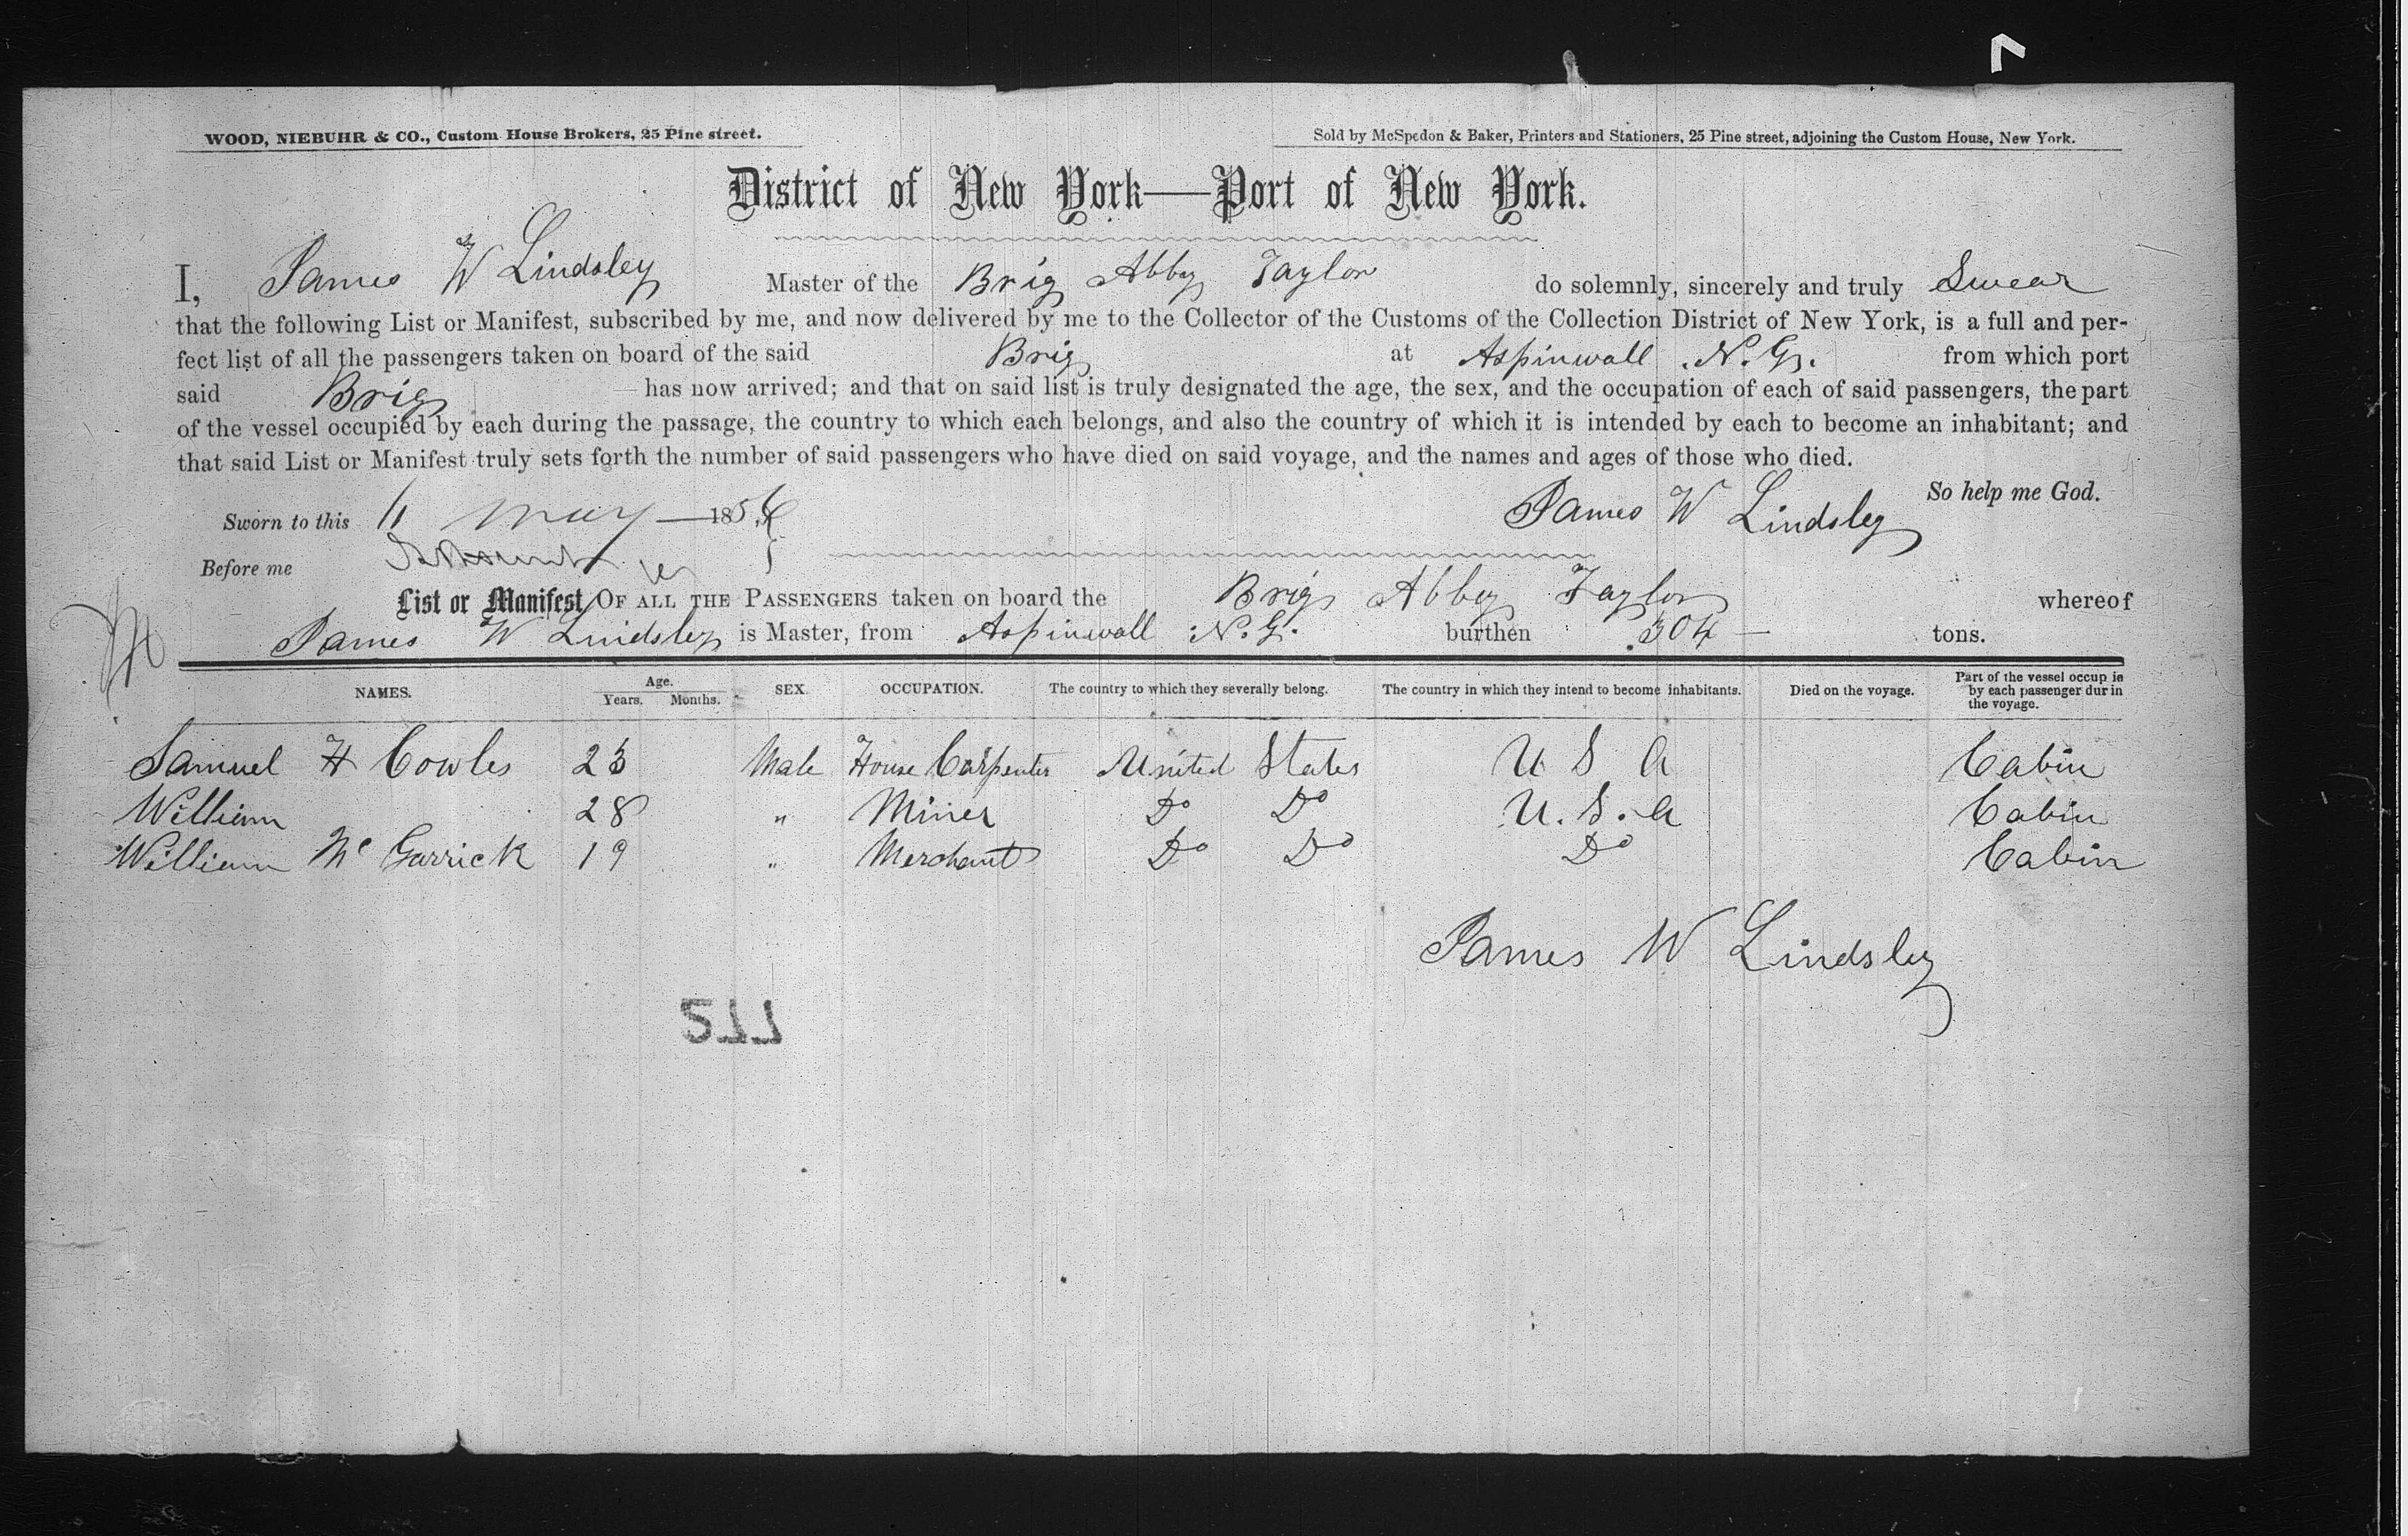 WOOD, NIEBUHR & CO., Custom House Brokers, 25 Pine street.
Sold by McSpedon & Baker, Printers and Stationers, 25 Pine street, adjoining the Custom House, New York.
District of New York—Port of New York.
I, James W Lindsley Master of the Brig Abby Taylor do solemnly, sincerely and truly Swear
that the following List or Manifest, subscribed by me, and now delivered by me to the Collector of the Customs of the Collection District of New York, is a full and per-
fect list of all the passengers taken on board of the said Brig at Aspinwall N. G. from which port
said Brig has now arrived; and that on said list is truly designated the age, the sex, and the occupation of each of said passengers, the part
of the vessel occupied by each during the passage, the country to which each belongs, and also the country of which it is intended by each to become an inhabitant; and
that said List or Manifest truly sets forth the number of said passengers who have died on said voyage, and the names and ages of those who died.
So help me God.
Sworn to this 11 May 1856 James W Lindsley
Before me
List or Manifest OF ALL THE PASSENGERS taken on board the Brig Abby Taylor whereof
James W Lindsley is Master, from Aspinwall N. G. burthen 304 tons.
NAMES. Age. Years. Months. SEX. OCCUPATION. The country to which they severally belong. The country in which they intend to become inhabitants. Died on the voyage. Part of the vessel occup ie by each passenger dur in the voyage.
Samuel H Cowles 23 Male House Carpenter United States U S A Cabin
William 28 " Miner Do Do U. S. A Cabin
William Mc Garrick 19 " Merchant Do Do Do Cabin
James W Lindsley
511